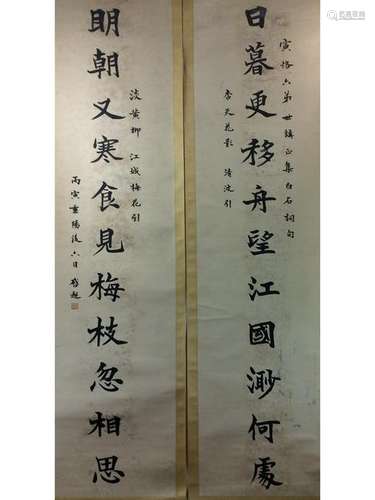 日暮更移舟望江國渺何處
寅恪六弟世講正集白石詞句
杏天花影 清波引
明朝又寒食見梅枝忽相思
淡黄柳 江城梅花引
丙寅重陽後六日